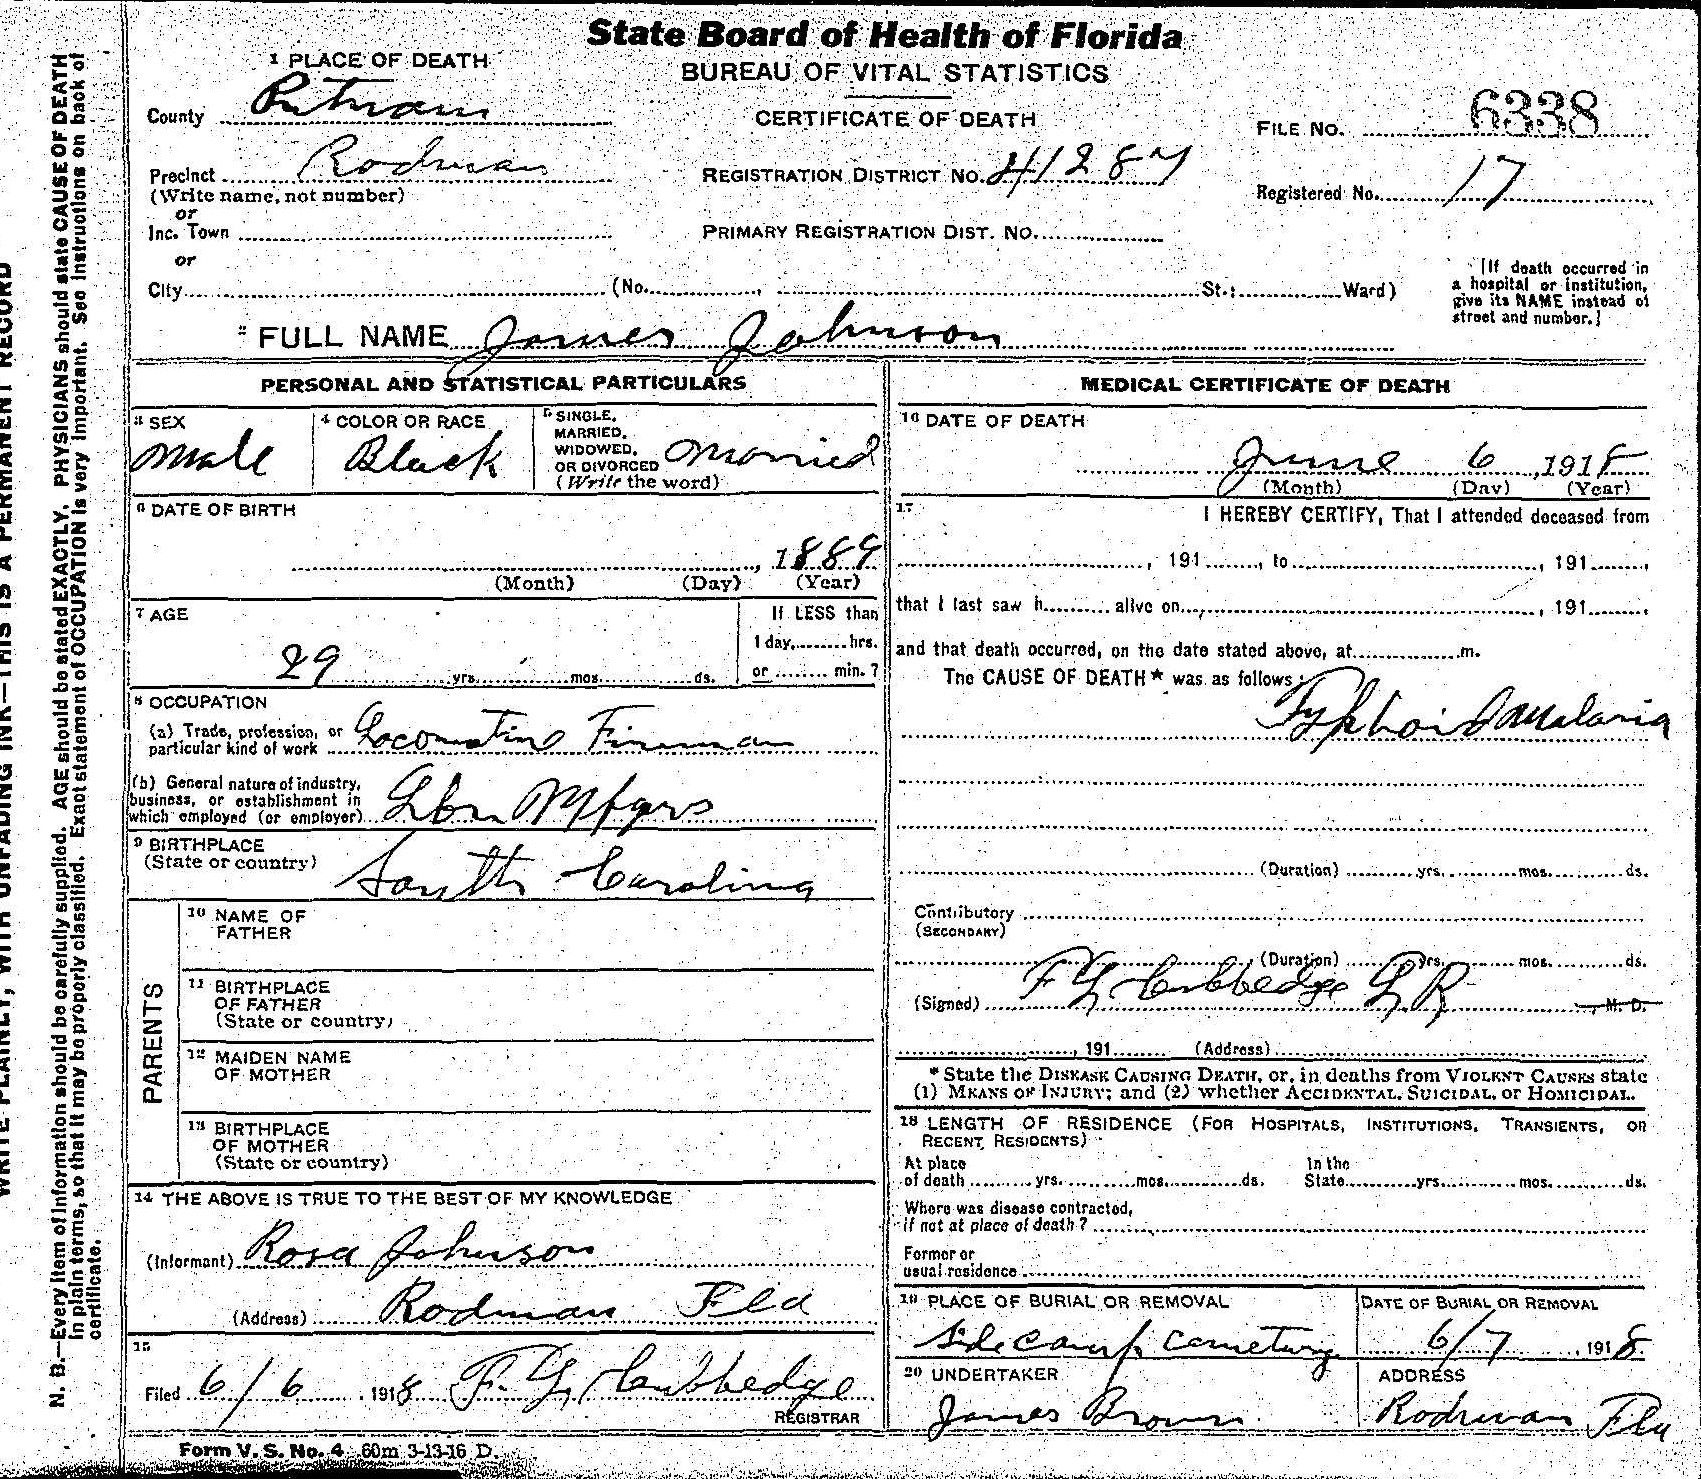 State Board of Health of Florida
BUREAU OF VITAL STATISTICS
CERTIFICATE OF DEATH
1 PLACE OF DEATH
County Putnam
FILE NO. 6338
Precinct Rodman
(Write name, not number)
REGISTRATION DISTRICT NO. 41287
Registered No. 17
or
Inc. Town
PRIMARY REGISTRATION DIST. NO.
or
City (No. , St.; Ward)
[If death occurred in
a hospital or institution,
give its NAME instead of
street and number.]
2 FULL NAME James Johnson
PERSONAL AND STATISTICAL PARTICULARS
3 SEX
Male
4 COLOR OR RACE
Black
5 SINGLE,
MARRIED,
WIDOWED,
OR DIVORCED
(Write the word)
Married
6 DATE OF BIRTH
, 1889
(Month) (Day) (Year)
7 AGE
29 yrs. mos. ds.
If LESS than
1 day, hrs.
or min.?
8 OCCUPATION
(a) Trade, profession, or
particular kind of work Locomotive Fireman
(b) General nature of industry,
business, or establishment in
which employed (or employer) Lbr Mfgrs
9 BIRTHPLACE
(State or country) South Carolina
PARENTS
10 NAME OF
FATHER
11 BIRTHPLACE
OF FATHER
(State or country)
12 MAIDEN NAME
OF MOTHER
13 BIRTHPLACE
OF MOTHER
(State or country)
14 THE ABOVE IS TRUE TO THE BEST OF MY KNOWLEDGE
(Informant) Rosa Johnson
(Address) Rodman Fla
15
Filed 6/6, 1918 F. G. Cubbedge
REGISTRAR
Form V. S. No. 4 60m 3-13-16 D.
MEDICAL CERTIFICATE OF DEATH
16 DATE OF DEATH
June 6, 1918
(Month) (Day) (Year)
17 I HEREBY CERTIFY, That I attended deceased from
, 191 , to , 191 ,
that I last saw h alive on , 191 ,
and that death occurred, on the date stated above, at m.
The CAUSE OF DEATH* was as follows:
Typhoid Malaria
(Duration) yrs. mos. ds.
Contributory
(SECONDARY)
(Duration) yrs. mos. ds.
(Signed) F G Cubbedge L R , M. D.
, 191 (Address)
* State the DISEASE CAUSING DEATH, or, in deaths from VIOLENT CAUSES state
(1) MEANS OF INJURY; and (2) whether ACCIDENTAL, SUICIDAL, or HOMICIDAL.
18 LENGTH OF RESIDENCE (FOR HOSPITALS, INSTITUTIONS, TRANSIENTS, OR
RECENT RESIDENTS)
At place
of death yrs. mos. ds.
In the
State yrs. mos. ds.
Where was disease contracted,
if not at place of death?
Former or
usual residence
19 PLACE OF BURIAL OR REMOVAL
Side camp cemetary
DATE OF BURIAL OR REMOVAL
6/7, 1918
20 UNDERTAKER
James Brown
ADDRESS
Rodman Fla
WRITE PLAINLY, WITH UNFADING INK—THIS IS A PERMANENT RECORD
N. B.—Every item of information should be carefully supplied. AGE should be stated EXACTLY. PHYSICIANS should state CAUSE OF DEATH
in plain terms, so that it may be properly classified. Exact statement of OCCUPATION is very important. See instructions on back of
certificate.